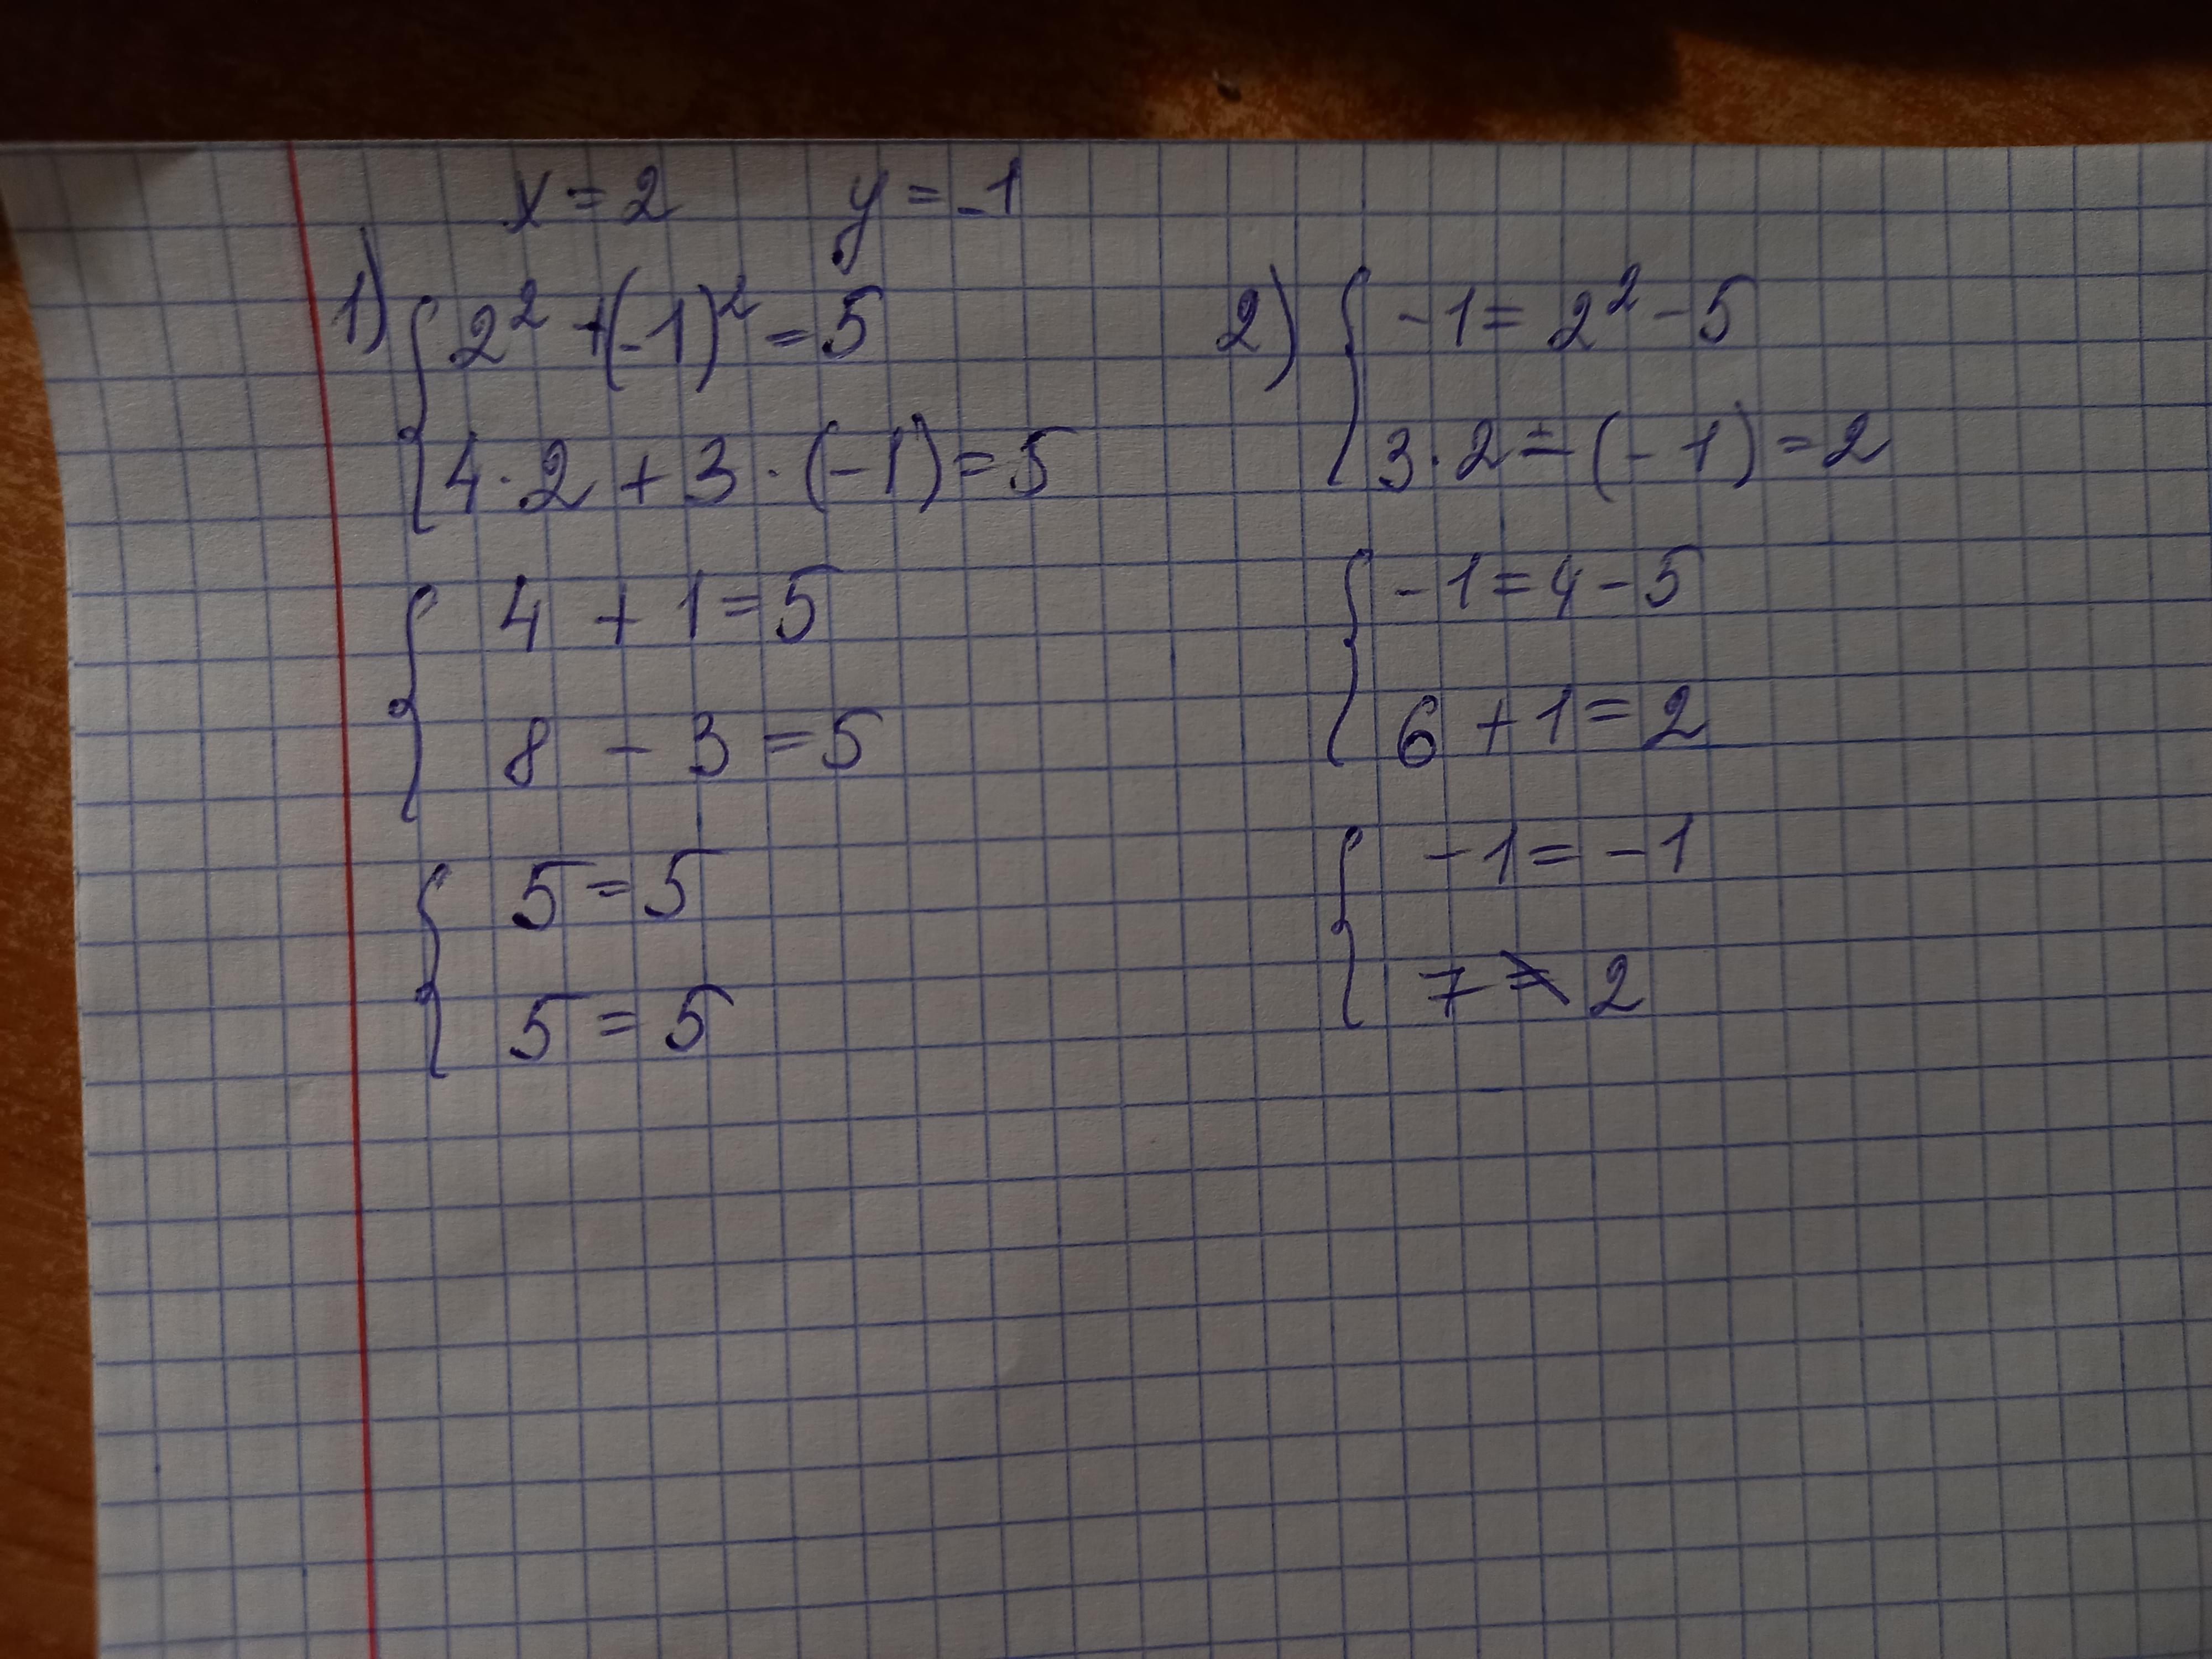 x = 2 y = -1
1) { 2² + (-1)² = 5
4 · 2 + 3 · (-1) = 5
{ 4 + 1 = 5
8 - 3 = 5
{ 5 = 5
5 = 5
2) { -1 = 2² - 5
3 · 2 - (-1) = 2
{ -1 = 4 - 5
6 + 1 = 2
{ -1 = -1
7 ≠ 2